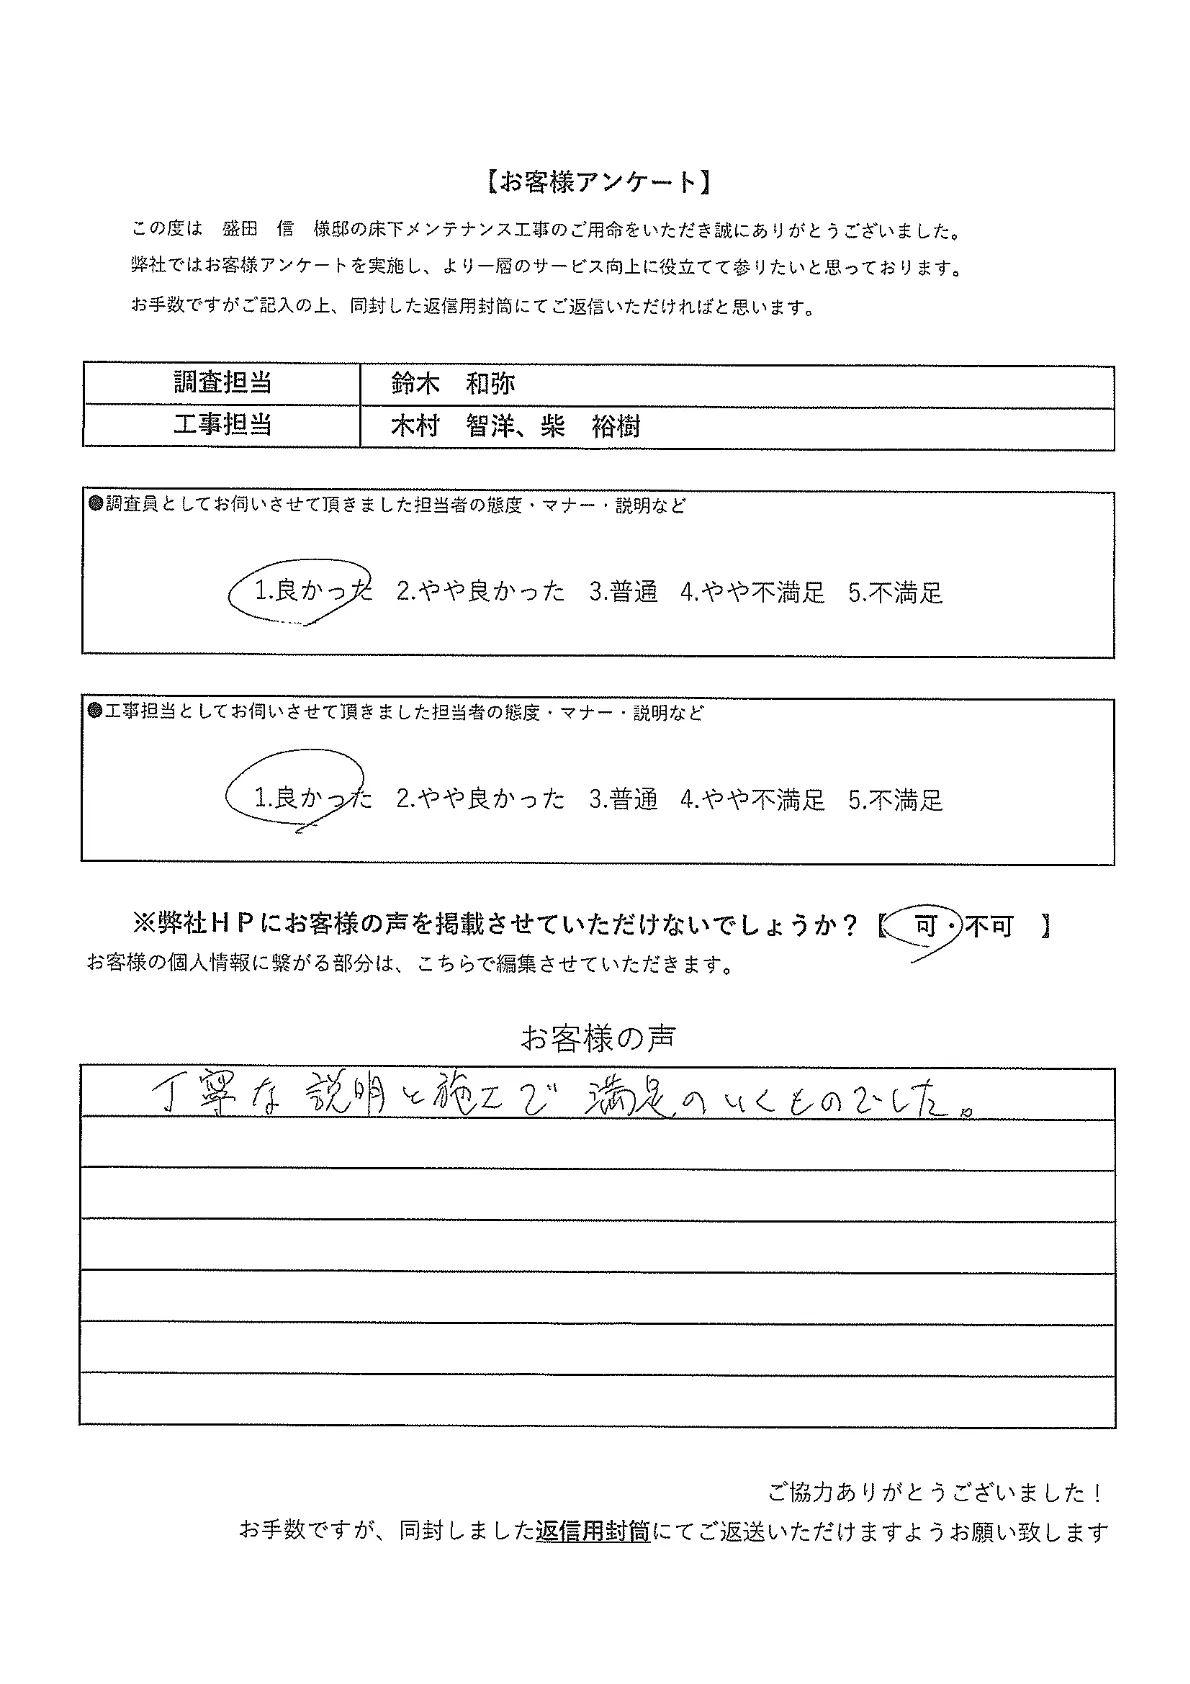 【お客様アンケート】
この度は　盛田　信　様邸の床下メンテナンス工事のご用命をいただき誠にありがとうございました。
弊社ではお客様アンケートを実施し、より一層のサービス向上に役立てて参りたいと思っております。
お手数ですがご記入の上、同封した返信用封筒にてご返信いただければと思います。
調査担当　鈴木　和弥
工事担当　木村　智洋、柴　裕樹
●調査員としてお伺いさせて頂きました担当者の態度・マナー・説明など
1.良かった　2.やや良かった　3.普通　4.やや不満足　5.不満足
●工事担当としてお伺いさせて頂きました担当者の態度・マナー・説明など
1.良かった　2.やや良かった　3.普通　4.やや不満足　5.不満足
※弊社ＨＰにお客様の声を掲載させていただけないでしょうか？【　可・不可　】
お客様の個人情報に繋がる部分は、こちらで編集させていただきます。
お客様の声
丁寧な説明と施工で満足のいくものでした。
ご協力ありがとうございました！
お手数ですが、同封しました返信用封筒にてご返送いただけますようお願い致します